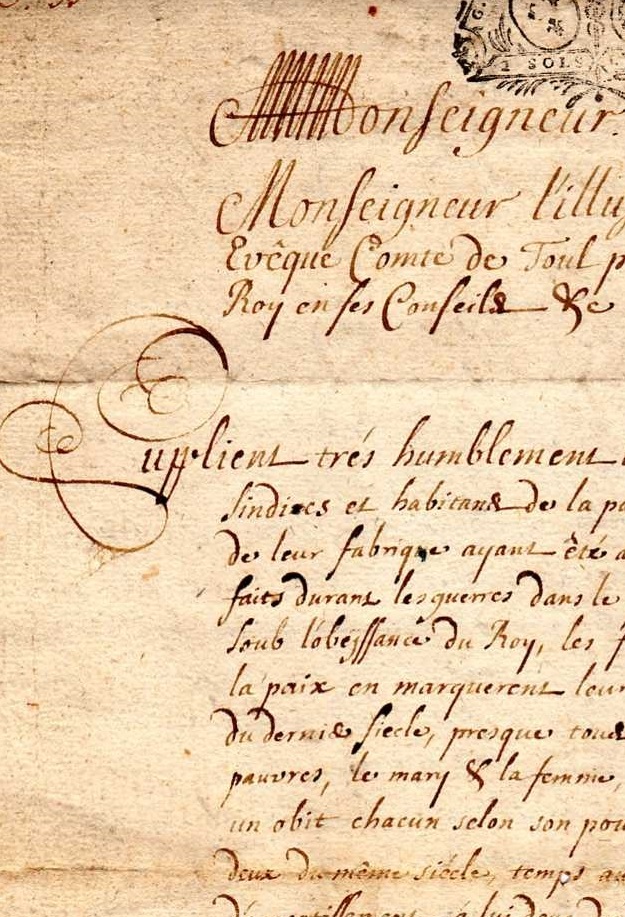 2 SOLS
Monseigneur.
Monseigneur l'illus
Evêque Comte de Toul p
Roy en ses Conseils &c
Supplient trés humblement
sindics et habitans de la pa
de leur fabrique ayant êté a
faits durant les guerres dans le
soub l'obeissance du Roy, les f
la paix en marquerent leur
du dernier siecle, presque tous
pauvres, le mary & la femme,
un obit chacun selon son pou
deux du même siécle, temps au